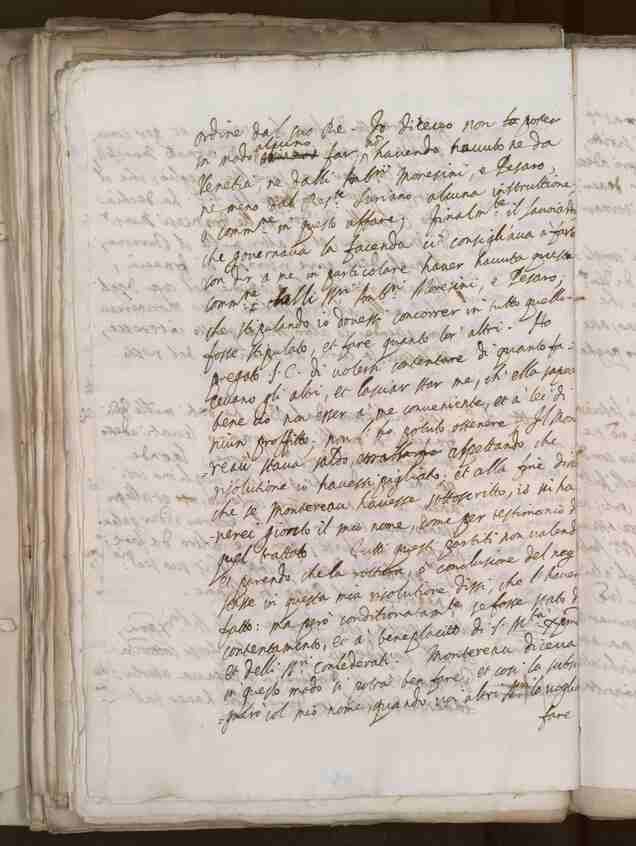 ordine dal suo Re. Io diceuo non lo poter
in modo alcuno far, nõ hauendo hauuto ne da
Venetia, ne dalli Ambri Moresini, e Pesaro,
ne meno dal Reste Suriano alcuna instruttione,
ò commne in questo affare; finalmte il
che gouernaua la facenda ci consigliaua à fare
con dir à me in particolare hauer hauuta
commne dalli SSri Ambri Moresini, e Pesaro,
che stipulando io douessi concorrer in tutto quello
fosse stipulato, et fare quanto lor altri. Ho
pregato S. E. di volersi contentare di quanto fa-
ceuano gli altri, et lasciar star me, ch' ella sapea
bene ciò non esser à me conueniente, et à lei di
niun profitto. non l' ho potuto ottenere. Il Mon
-reaù staua saldo, aspettando, che
risolutione io hauessi pigliato: et alla fine dire
che se Montereau hauesse sottoscritto, io vi ha
-uerei gionto il mio nome, come per testimonio d
quel trattato. Tutti questi partiti non valend
et parendo, che la rottura, e conclusione del neg
stasse in questa mia risolutione dissi, che l' hauer
fatto: ma però conditionatamte se fosse stato d
contentamento, et à beneplacito di S. Mtà Xpma
et delli SSri Confederati. Montereau diceua
in questo modo si potrà ben fare, et così la
col mio nome, quando voi altri SSri lo voglia
fare